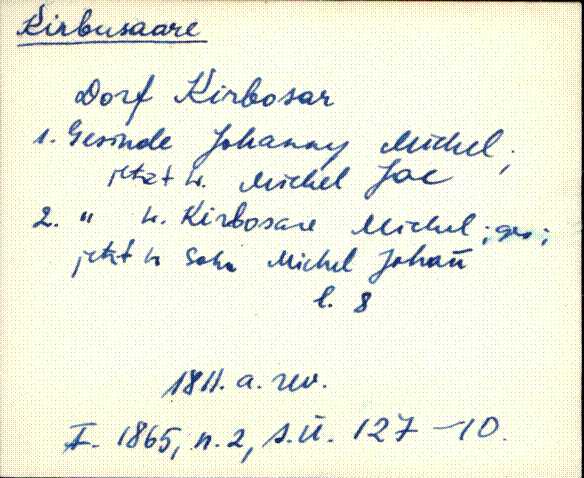 Kirbusaare
Dorf Kirbosar
1. Gesinde Johanny Michel;
jetzt W. Michel Jae
2. " W. Kirbosare Michel;
jetzt W Sohn Michel Johan̄
l. 8
1811. a. rev.
F. 1865, n. 2, s. ü. 127-10.